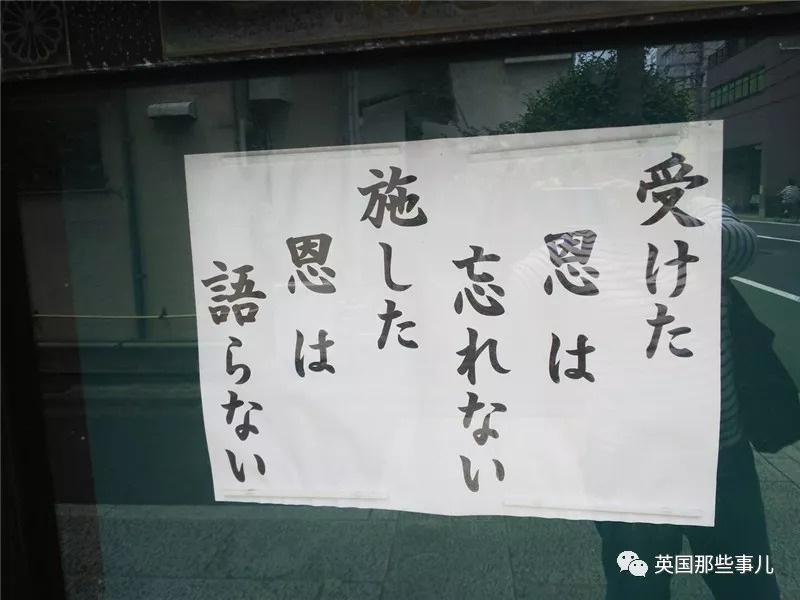 受けた
恩は
忘れない
施した
恩は
語らない
英国那些事儿